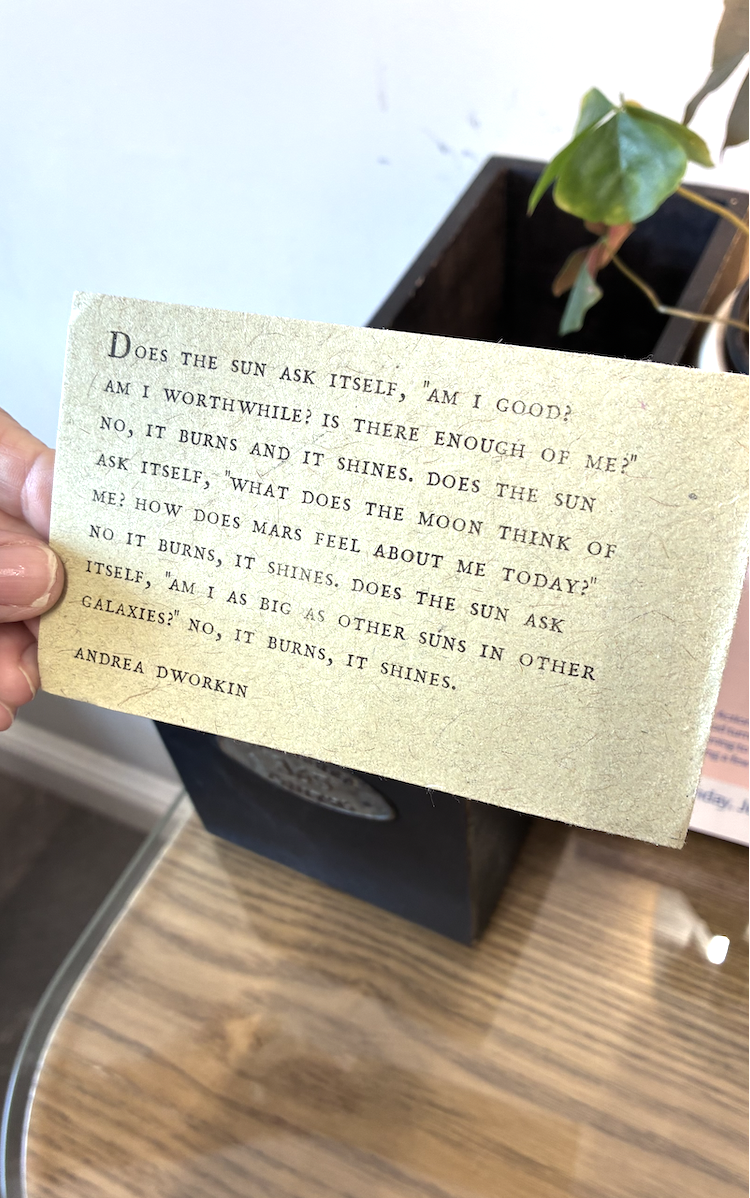 DOES THE SUN ASK ITSELF, "AM I GOOD?
AM I WORTHWHILE? IS THERE ENOUGH OF ME?"
NO, IT BURNS AND IT SHINES. DOES THE SUN
ASK ITSELF, "WHAT DOES THE MOON THINK OF
ME? HOW DOES MARS FEEL ABOUT ME TODAY?"
NO IT BURNS, IT SHINES. DOES THE SUN ASK
ITSELF, "AM I AS BIG AS OTHER SUNS IN OTHER
GALAXIES?" NO, IT BURNS, IT SHINES.
ANDREA DWORKIN